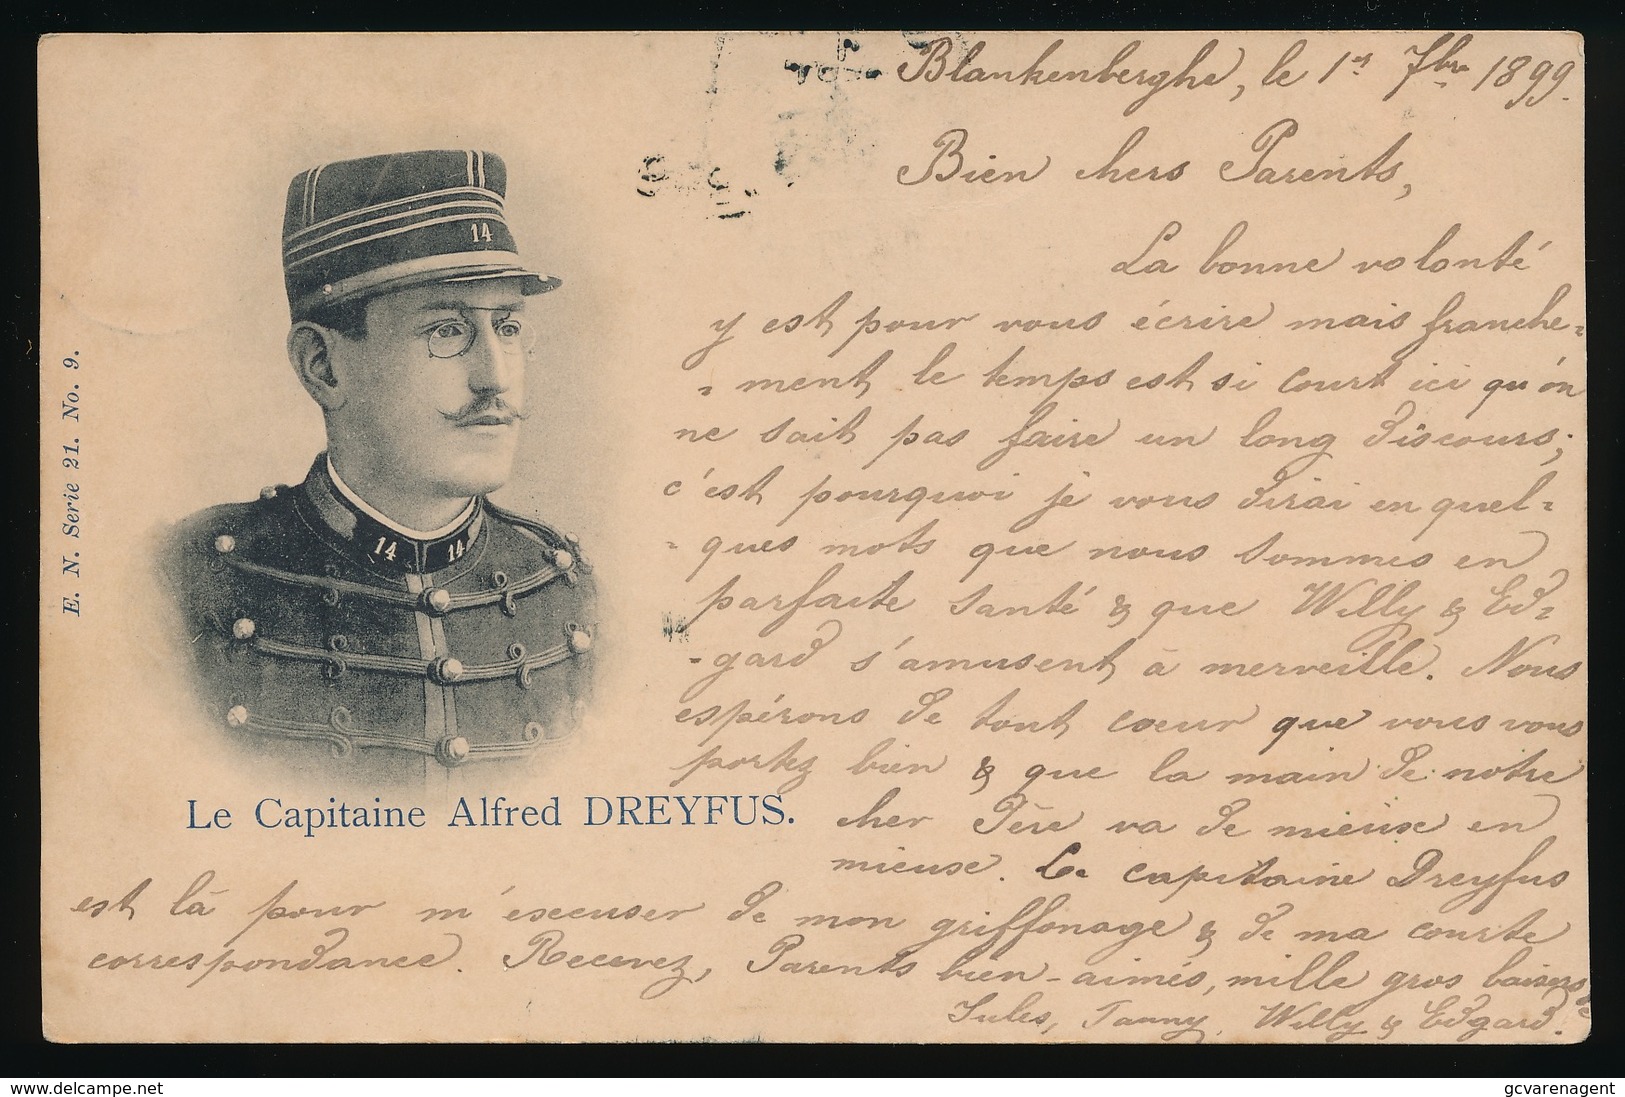 Blankenberghe, le 1er 7bre 1899.
Bien chers Parents,
La bonne volonté
y est pour vous écrire mais franche=
=ment le temps est si court ici qu'on
ne sait pas faire un long discours;
c'est pourquoi je vous dirai en quel=
=ques mots que nous sommes en
parfaite santé & que Willy & Ed=
=gard s'amusent à merveille. Nous
espérons de tout coeur que vous vous
portez bien & que la main de notre
cher Père va de mieux en
mieux. Le capitaine Dreyfus
est là pour m'excuser de mon griffonage & de ma courte
correspondance. Recevez, Parents bien-aimés, mille gros baisers de
Jules, Fanny, Willy & Edgard.
14
14 14
E. N. Serie 21. No. 9.
Le Capitaine Alfred DREYFUS.
www.delcampe.net
gcvarenagent